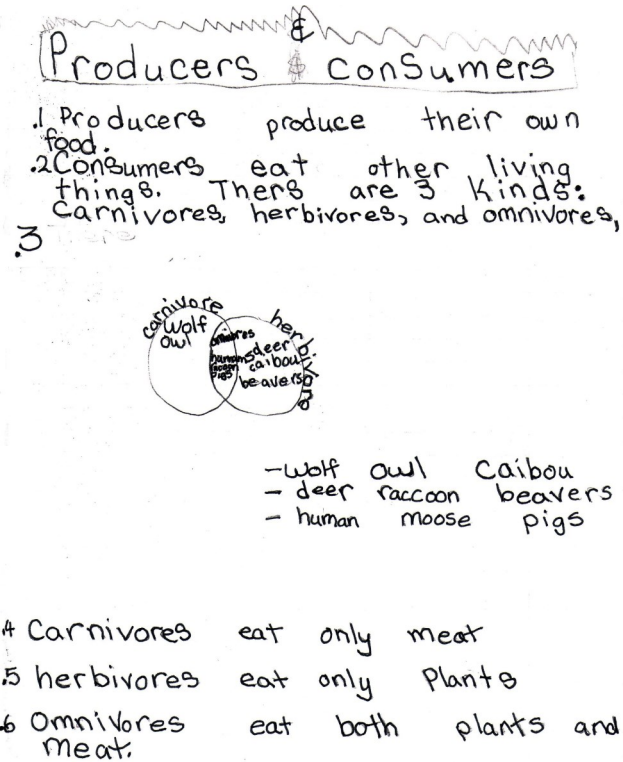 &
Producers & conSumers
.1 Producers produce their own
food.
.2 Consumers eat other living
things. Thers are 3 Kinds:
carnivores, herbivores, and omnivores,
.3 There
carnivore
herbivore
wolf
owl
omnivores
humans
racoon
pigs
deer
caibou
beavers
- wolf owl Caibou
- deer raccoon beavers
- human moose pigs
.4 Carnivores eat only meat
.5 herbivores eat only Plants
.6 Omnivores eat both plants and
meat.